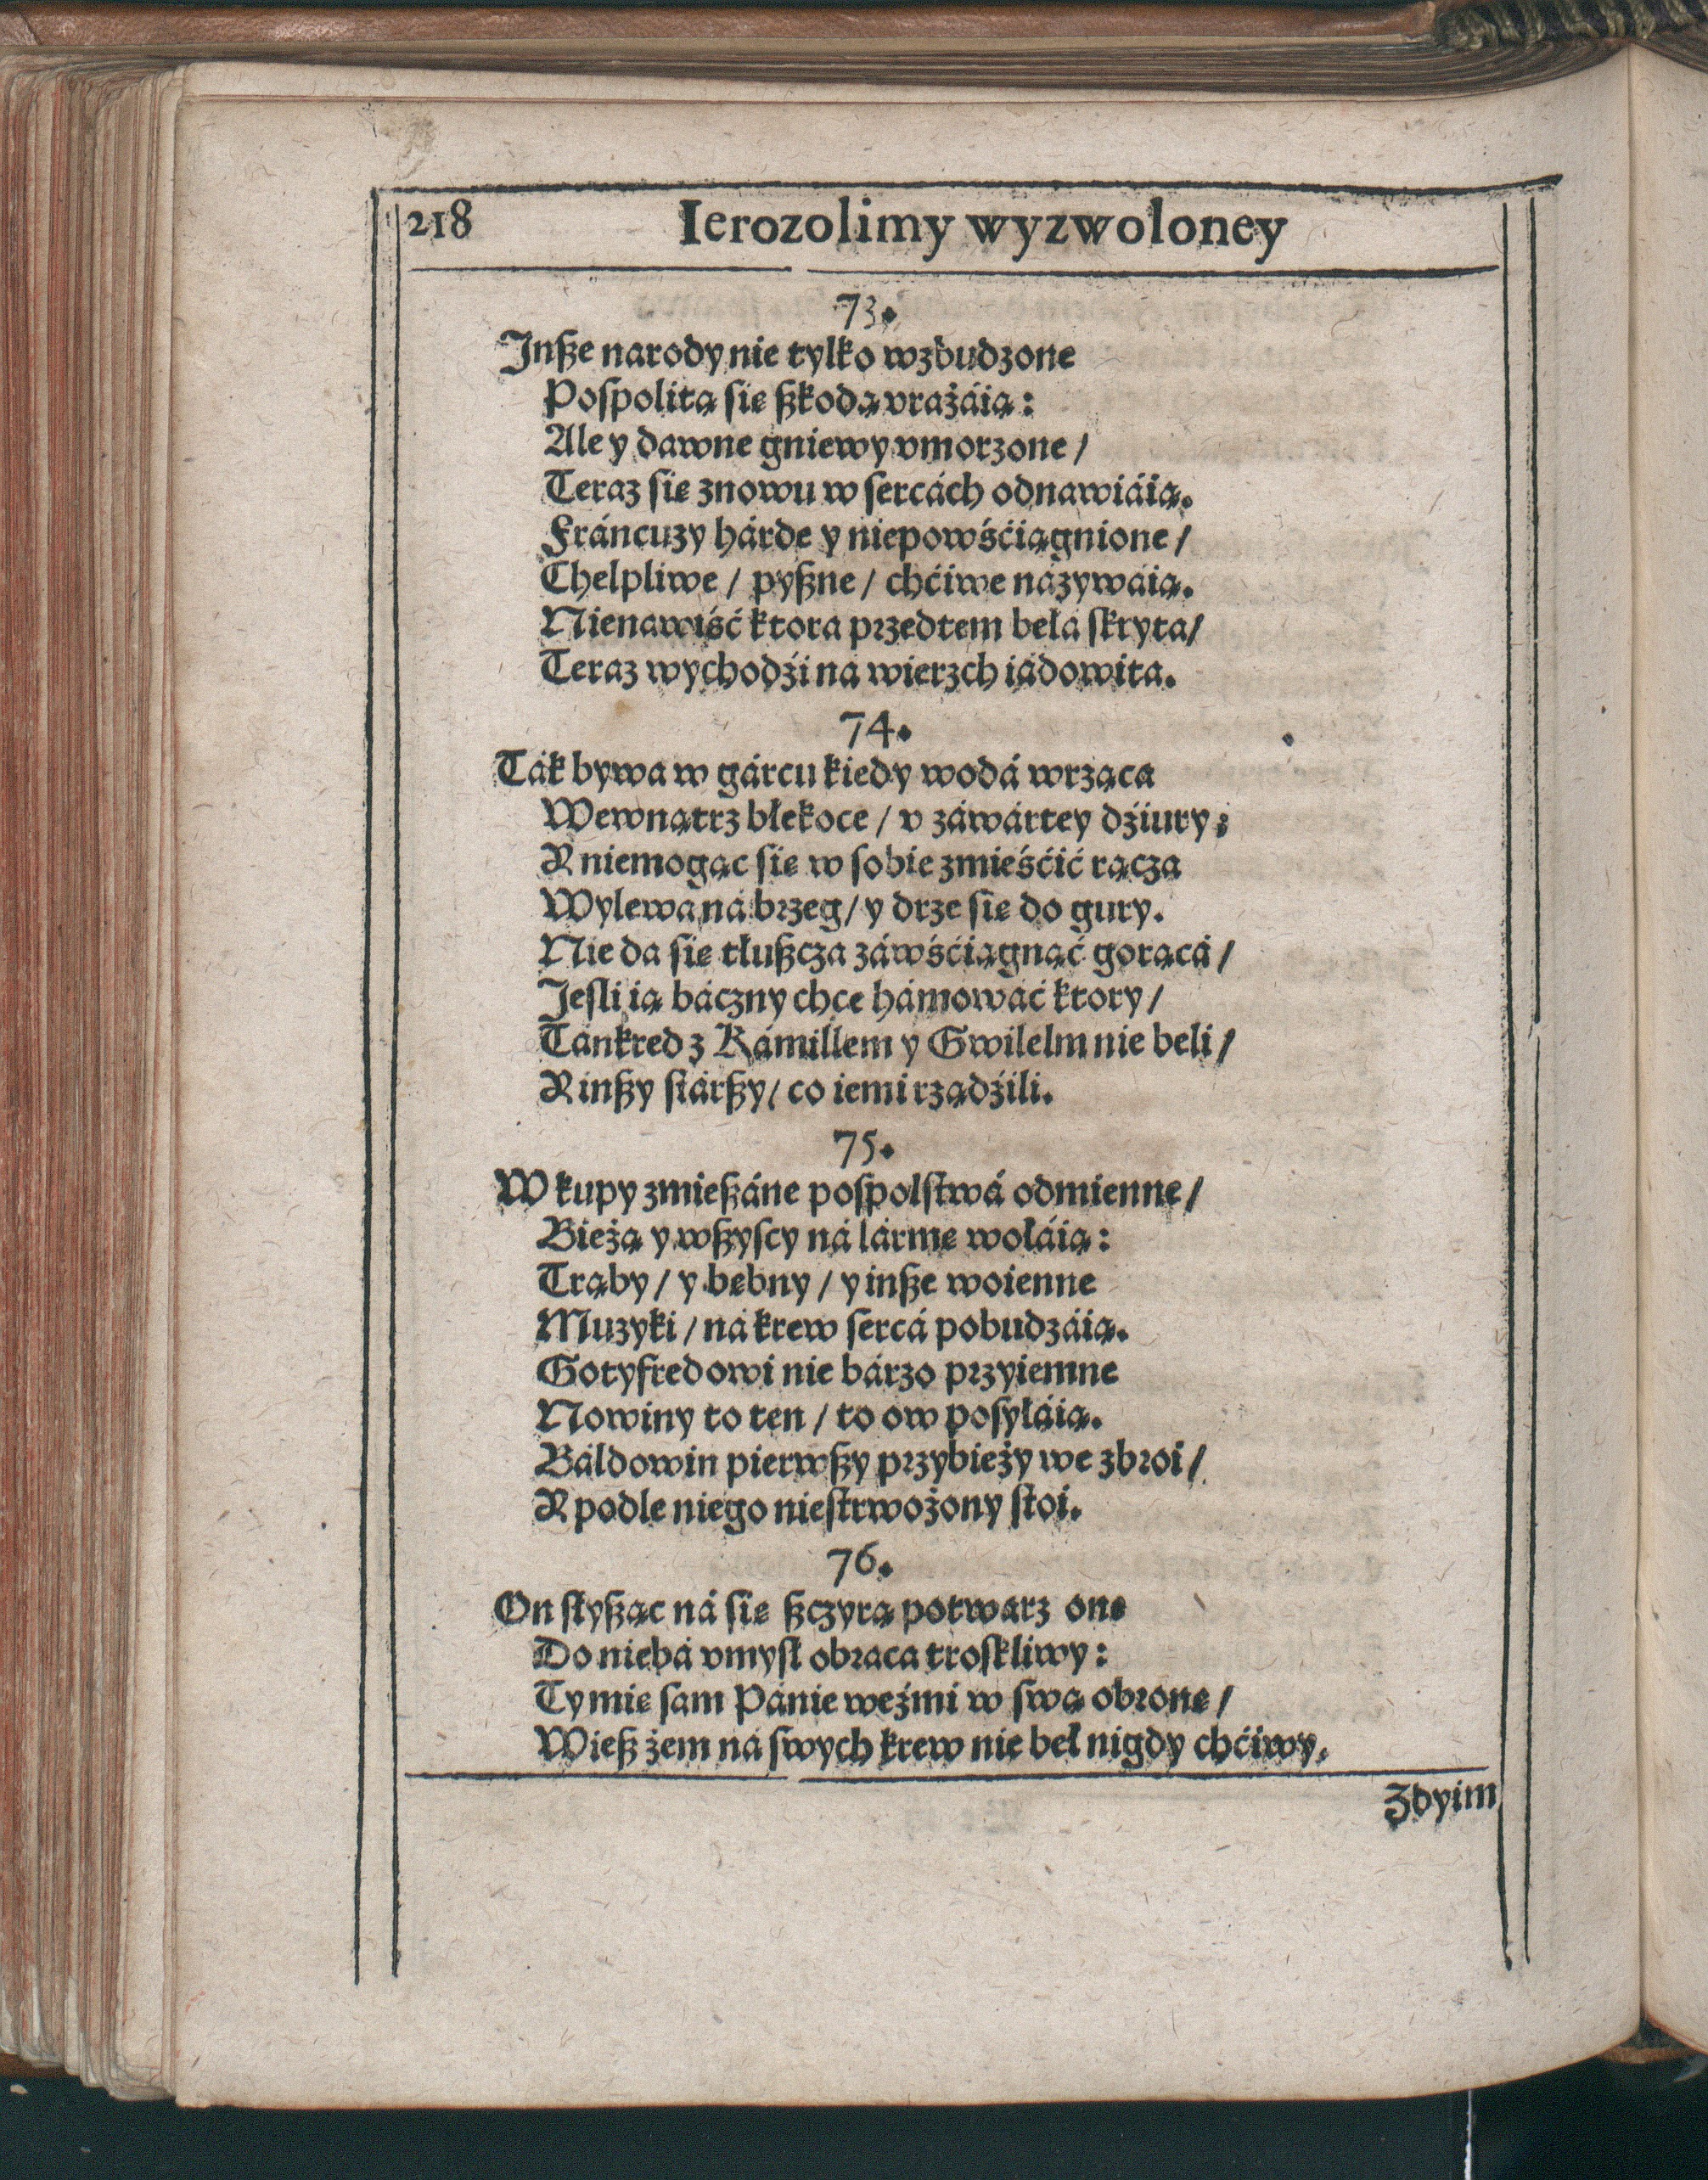 218 Ierozolimy wyzwoloney
73.
Jnſże narody nie tylko wzbudzone
Poſpolitą się ſzkodą vrażáią:
Ale y dawne gniewy vmorzone /
Teraz się znowu w sercách odnawiáią.
Fráncuzy hárde y niepowśćiągnione /
Chelpliwe / pyſzne / chćiwe názywáią.
Nienawiść ktora przedtem beła skryta/
Teraz wychodźi ná wierzch iádowita.
74.
Ták bywa w gárcu kiedy wodá wrząca
Wewnątrz błekoce / v záwártey dźiury;
Y niemogąc się w sobie zmieśćić rącza
Wylewa ná brzeg / y drze się do gury.
Nie da się tłuſzcza záwśćiągnąć gorącá /
Jeſli ią báczny chce hámowáć ktory /
Tánkred z Kámillem y Gwilelm nie beli /
Y inſzy stárſzy / co iemi rządźili.
75.
W kupy zmieſzáne poſpolſtwá odmienne /
Bieżą y wſzyſcy ná lármę wołáią:
Trąby / y bębny / y inſze woienne
Muzyki / ná krew sercá pobudzáią.
Gotyfredowi nie bárzo przyiemne
Nowiny to ten / to ow poſyłáią.
Báldowin pierwſzy przybieży we zbroi /
Y podle niego niestrwożony stoi.
76.
On słyſząc ná się ſzczyrą potwarz onę
Do niebá vmyſł obraca troskliwy:
Ty mię sam Pánie weźmi w swą obronę /
Wieſz żem ná swych krew nie beł nigdy chćiwy.
Zdyim